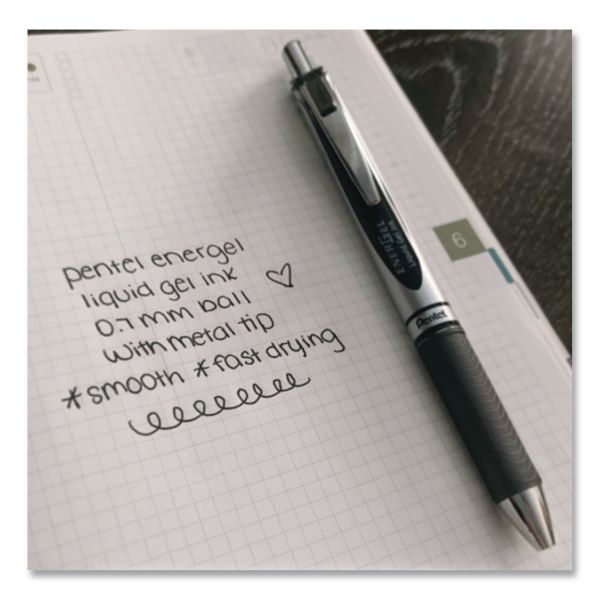 pentel energel
liquid gel ink
0.7 mm ball
with metal tip
*smooth *fast drying
ENERGEL
Liquid Gel Ink
Pentel
6